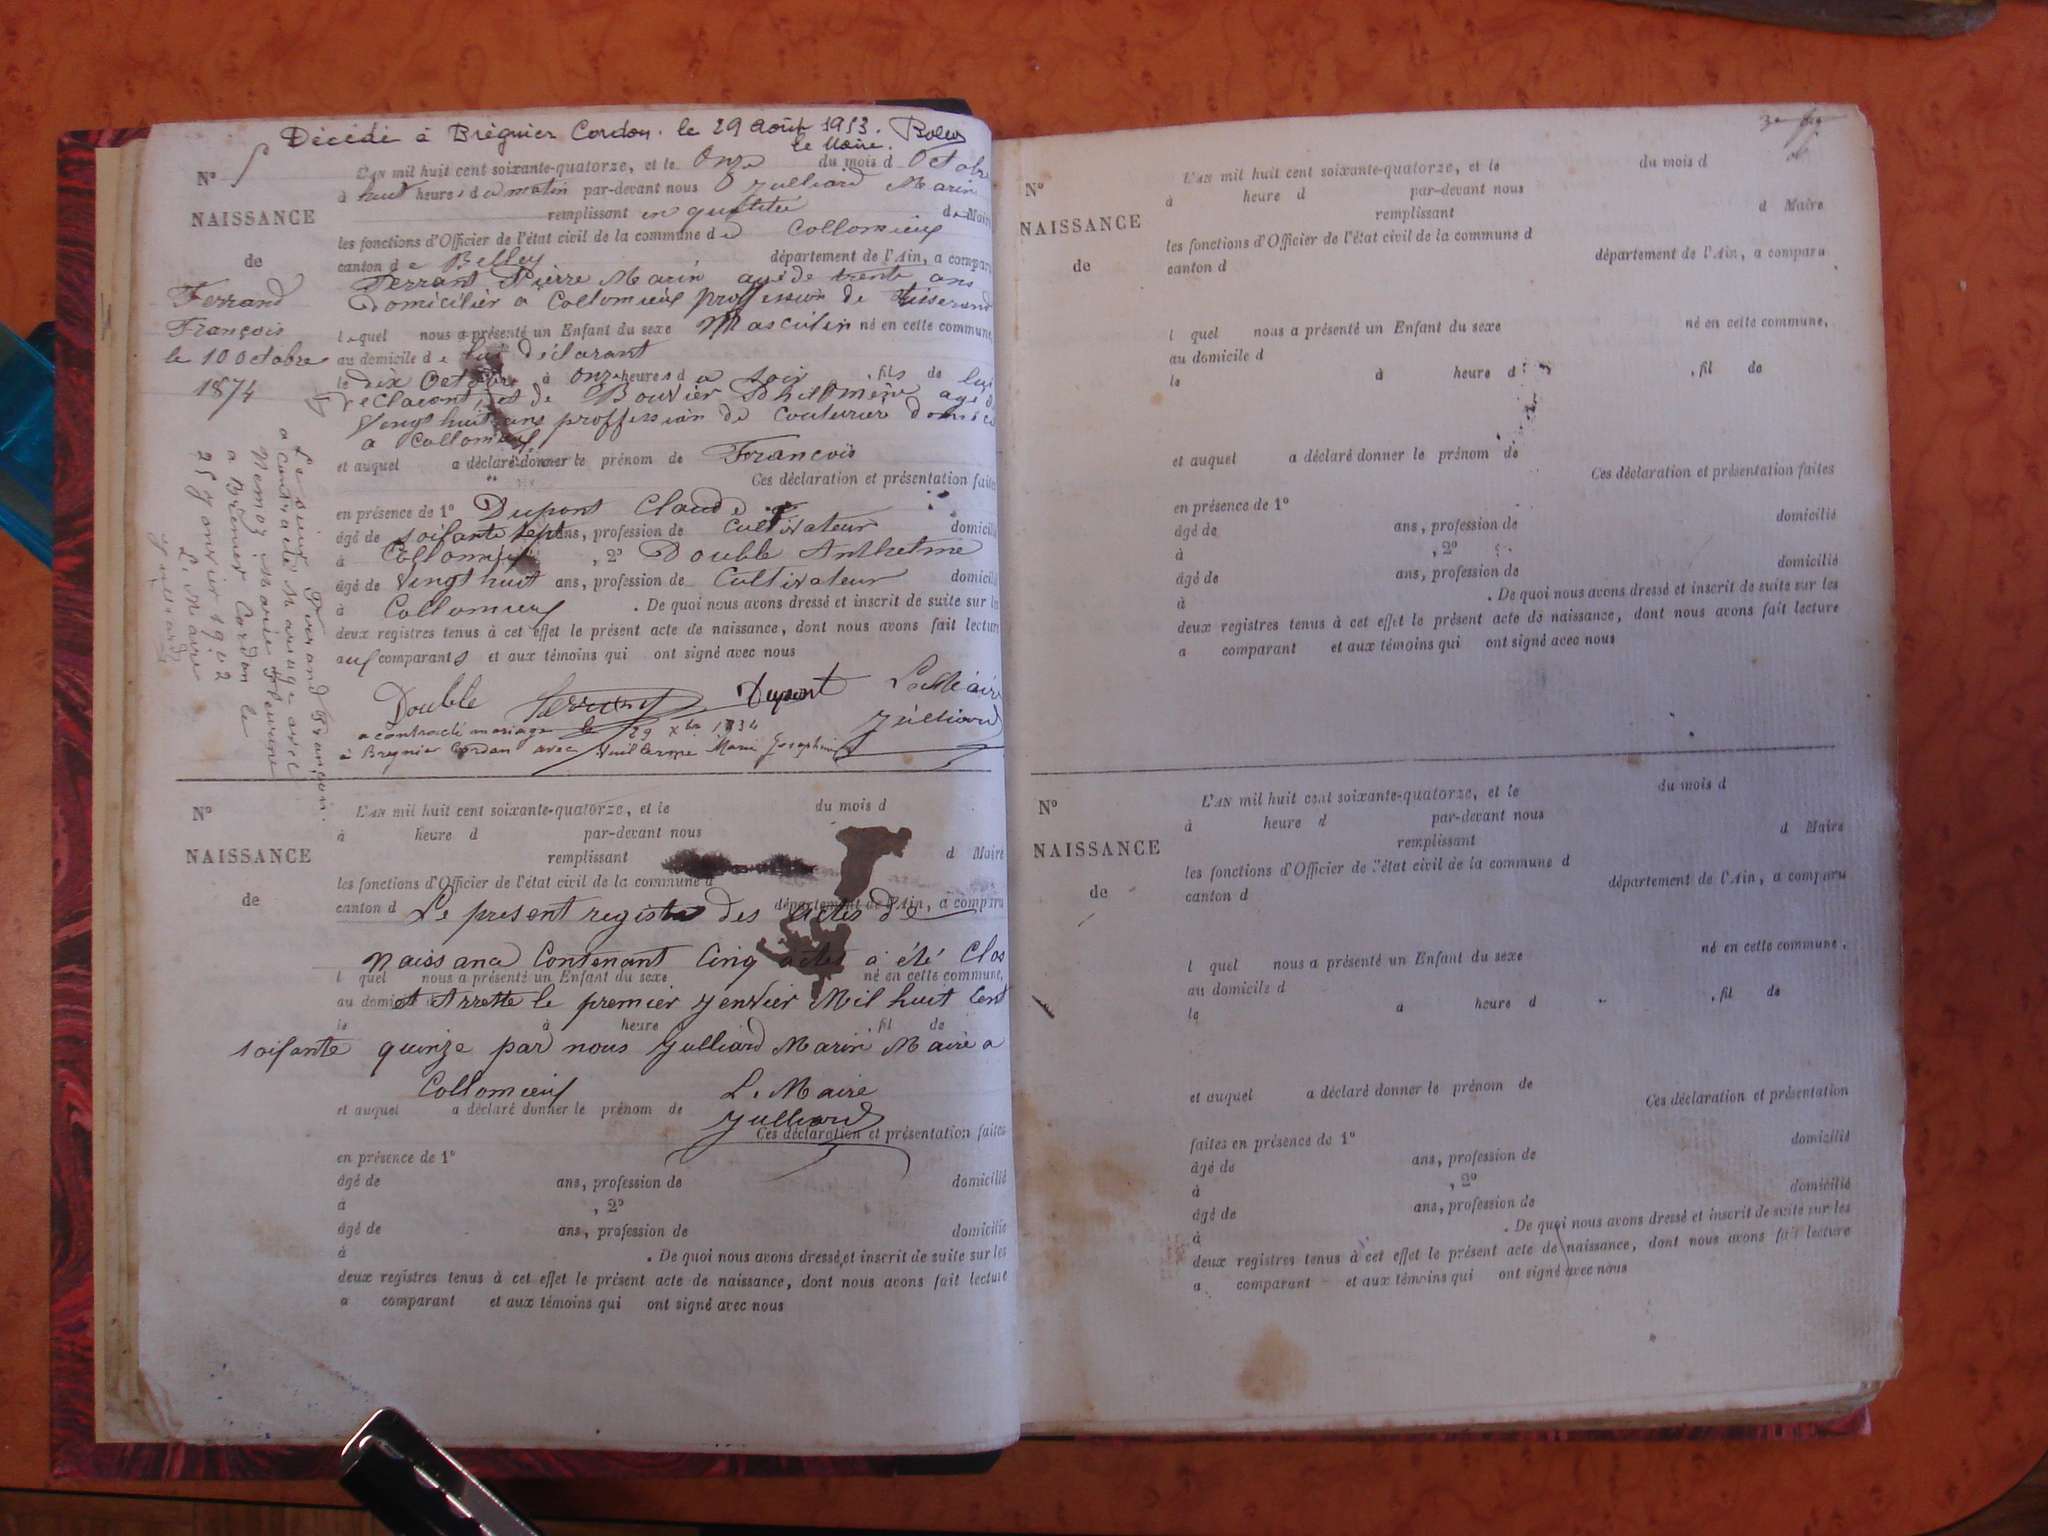 Décédé à Brégnier Cordon. le 29 août 1953.
le Maire.
N° 5
NAISSANCE
de
Ferrand
François
le 10 octobre
1874
L'AN mil huit cent soixante-quatorze, et le Onze du mois d Octobre
à huit heures du matin par-devant nous Julliard Marin
remplissant en qualité de Maire
les fonctions d'Officier de l'état civil de la commune de Collomieux
canton de Belley département de l'Ain, a comparu
Ferrant Pierre Marin agé de trente ans
Domicilier a Collomieux proffession de tisserand
lequel nous a présenté un Enfant du sexe Masculin né en cette commune,
au domicile de lui déclarant
le dix Octobre à onze heures du soir , fils de lui
déclarant, et de Bouvier Philomène agé de
Vingt huit ans proffession de couturière
a Collomieux
et auquel a déclaré donner le prénom de François
Ces déclaration et présentation faites
en présence de 1° Dupont Claude
âgé de soisante sept ans, profession de Cultivateur domicilié
à Collomieux , 2° Double Anthelme
âgé de Vingt huit ans, profession de Cultivateur domicilié
à Collomieux . De quoi nous avons dressé et inscrit de suite sur les
deux registres tenus à cet effet le présent acte de naissance, dont nous avons fait lecture
aux comparants et aux témoins qui ont signé avec nous
Double Ferrant Dupont Le Maire
Julliard
a contracté mariage le 29 Xbre 1934
à Bregnier Cordon avec Marie Josephine
Le sieur Ferrand François
a contracté Mariage avec
Nemoz Marie
a Brégnier Cordon le
25 Janvier 1902
L. Maire
Julliard
N°
NAISSANCE
de
L'AN mil huit cent soixante-quatorze, et le du mois d
à heure d par-devant nous
remplissant d Maire
les fonctions d'Officier de l'état civil de la commune d
canton d département de l'Ain, a comparu
Le present registre des actes de
naissance Contenant Cinq actes a été Clos
l quel nous a présenté un Enfant du sexe né en cette commune,
au domicile
et Arrette le premier Jenvier Mil huit Cent
le à heure , fil de
soisante quinze par nous Julliard Marin Maire a
Collomieux L. Maire
et auquel a déclaré donner le prénom de Julliard
Ces déclaration et présentation faites
en présence de 1°
âgé de ans, profession de domicilié
à , 2°
âgé de ans, profession de domicilié
à . De quoi nous avons dressé et inscrit de suite sur les
deux registres tenus à cet effet le présent acte de naissance, dont nous avons fait lecture
a comparant et aux témoins qui ont signé avec nous
N°
NAISSANCE
de
L'AN mil huit cent soixante-quatorze, et le du mois d
à heure d par-devant nous
remplissant d Maire
les fonctions d'Officier de l'état civil de la commune d
canton d département de l'Ain, a comparu
l quel nous a présenté un Enfant du sexe né en cette commune,
au domicile d
le à heure d , fil de
et auquel a déclaré donner le prénom de
Ces déclaration et présentation faites
en présence de 1°
âgé de ans, profession de domicilié
à , 2°
âgé de ans, profession de
à . De quoi nous avons dressé et inscrit de suite sur les
deux registres tenus à cet effet le présent acte de naissance, dont nous avons fait lecture
a comparant et aux témoins qui ont signé avec nous
N°
NAISSANCE
de
L'AN mil huit cent soixante-quatorze, et le du mois d
à heure d par-devant nous
remplissant d Maire
les fonctions d'Officier de l'état civil de la commune d
canton d département de l'Ain, a comparu
l quel nous a présenté un Enfant du sexe né en cette commune,
au domicile d
le à heure d , fil de
et auquel a déclaré donner le prénom de
Ces déclaration et présentation
faites en présence de 1°
âgé de ans, profession de domicilié
à , 2°
âgé de ans, profession de domicilié
à . De quoi nous avons dressé et inscrit de suite sur les
deux registres tenus à cet effet le présent acte de naissance, dont nous avons fait lecture
a comparant et aux témoins qui ont signé avec nous